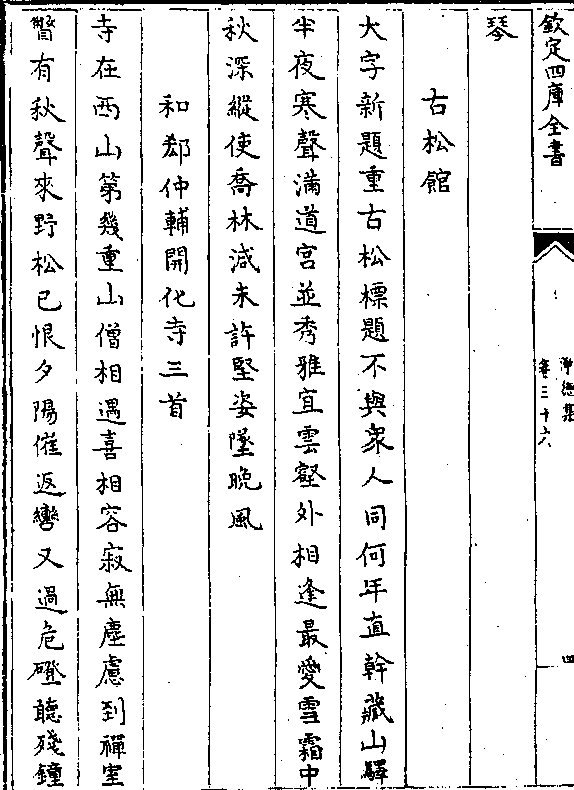 欽定四庫全書
淨德集
卷三十六
四
琴
古松館
大字新題重古松標題不與衆人同何年直幹藏山驛
半夜寒聲滿道宮並秀雅宜雲壑外相逢最愛雪霜中
秋深縱使喬林減未許堅姿墜晚風
和郄仲輔開化寺三首
寺在西山第幾重山僧相遇喜相容寂無塵慮到禪室
暫有秋聲來野松已恨夕陽催返轡又過危磴聽殘鐘